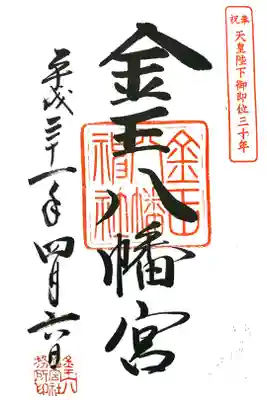 奉祝 天皇陛下御即位三十年
金王八幡宮
金王八幡神社
平成三十一年四月六日
金王八幡宮社務所印